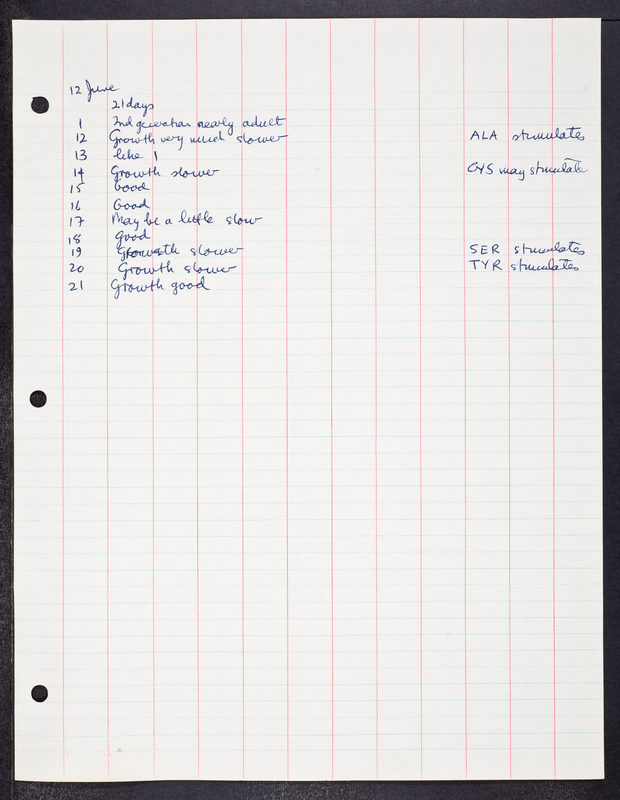 12 June
21 days
1 2nd generation nearly adult
12 Growth very much slower ALA stimulates
13 like 1
14 Growth slower CYS may stimulate
15 Good
16 Good
17 May be a little slow
18 Good
19 Growth slower SER stimulates
20 Growth slower TYR stimulates
21 Growth good